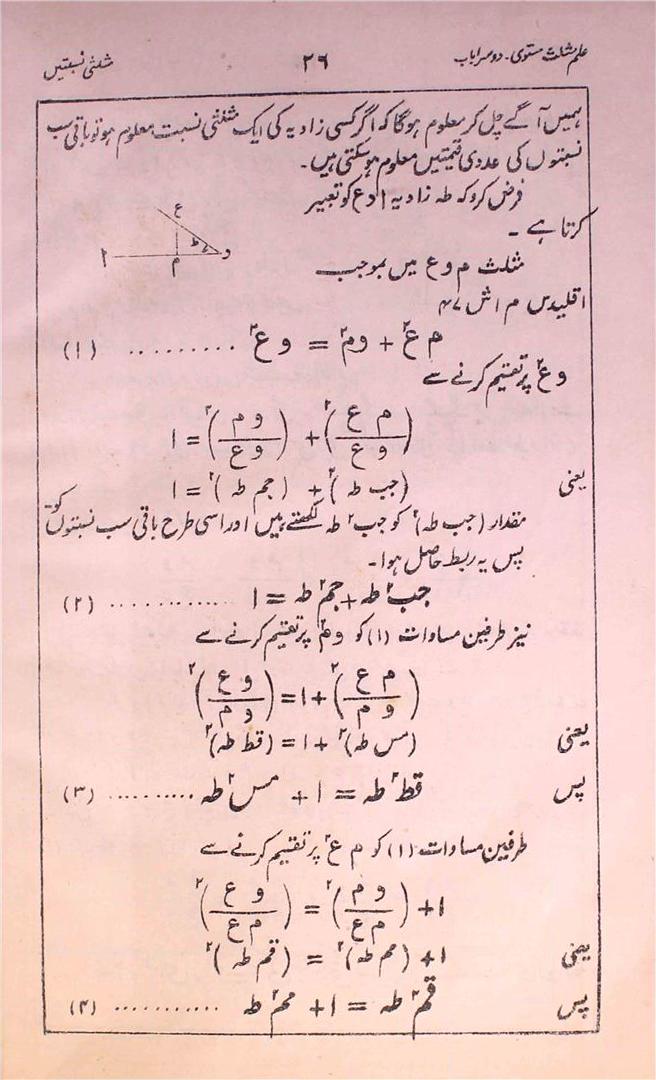 علم مثلث مستوی - دوسرا باب ۲۶ مثلثی نسبتیں
ہمیں آگے چل کر معلوم ہوگا کہ اگر کسی زاویہ کی ایک مثلثی نسبت معلوم ہو تو باقی سب
نسبتوں کی عددی قیمتیں معلوم ہو سکتی ہیں۔
فرض کرو کہ طہ زاویہ ا و ع کو تعبیر
کرتا ہے ۔
ع
ا م طہ و
مثلث م و ع میں بموجب
اقلیدس م ا ش ۴۷
م ع² + و م² = و ع² .......... (۱)
و ع² پر تقسیم کرنے سے
(م ع / و ع)² + (و م / و ع)² = ۱
یعنی (جب طہ)² + (جم طہ)² = ۱
مقدار (جب طہ)² کو جب² طہ لکھتے ہیں اور اسی طرح باقی سب نسبتوں کو۔
پس یہ ربط حاصل ہوا۔
جب² طہ + جم² طہ = ۱ ............ (۲)
نیز طرفین مساوات (۱) کو و م² پر تقسیم کرنے سے
(م ع / و م)² + ۱ = (و ع / و م)²
یعنی (مس طہ)² + ۱ = (قط طہ)²
پس قط² طہ = ۱ + مس² طہ ......... (۳)
طرفین مساوات (۱) کو م ع² پر تقسیم کرنے سے
۱ + (و م / م ع)² = (و ع / م ع)²
یعنی ۱ + (مم طہ)² = (قم طہ)²
پس قم² طہ = ۱ + مم² طہ ........... (۴)